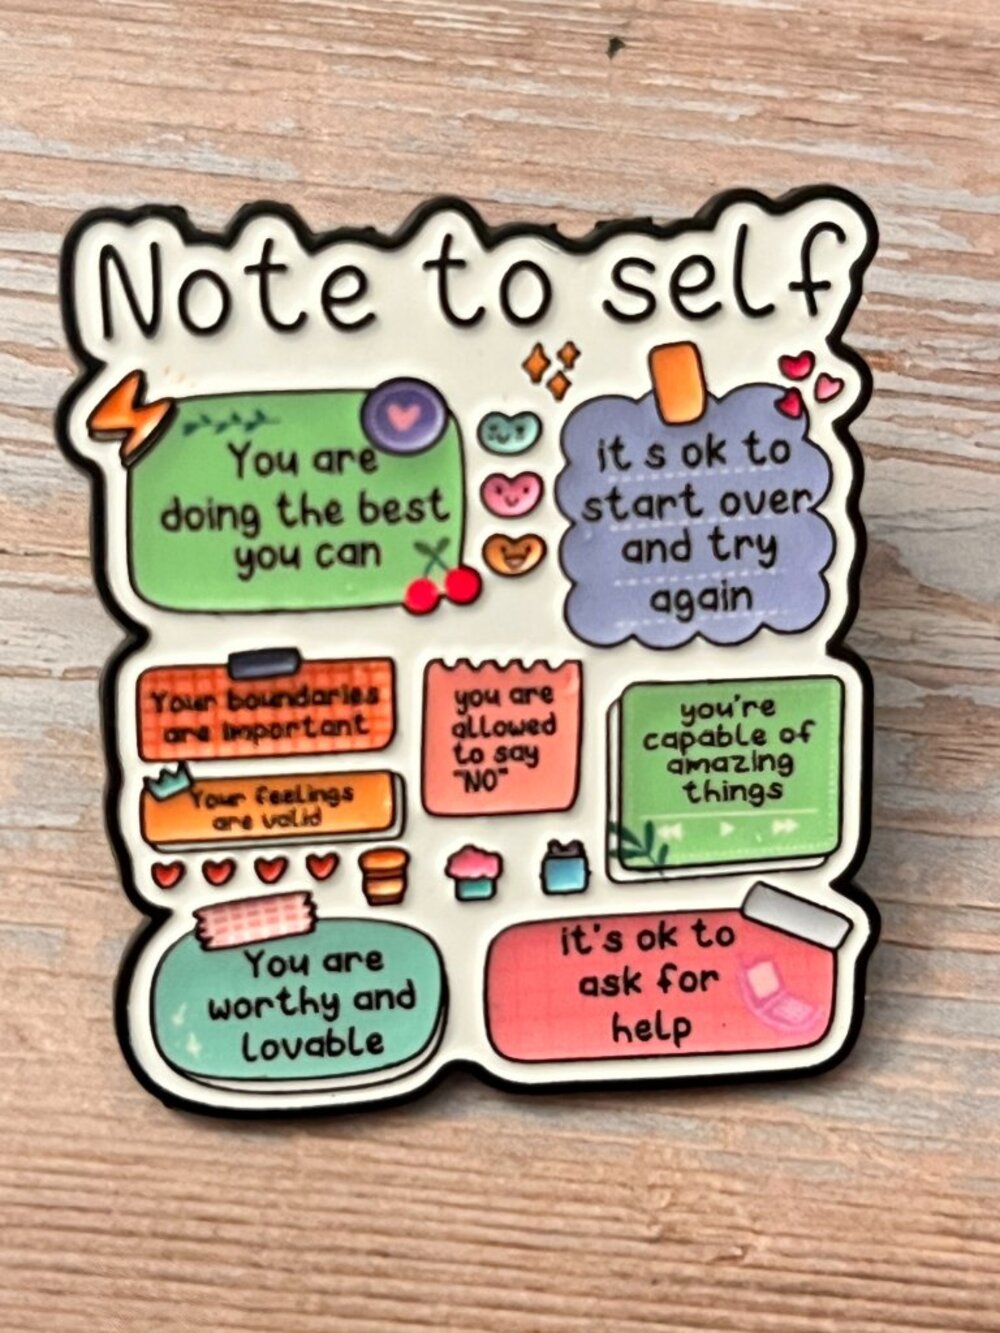 Note to self
You are
doing the best
you can
it s ok to
start over
and try
again
Your boundaries
are important
Your feelings
are valid
you are
allowed
to say
"NO"
you're
capable of
amazing
things
You are
worthy and
lovable
it's ok to
ask for
help